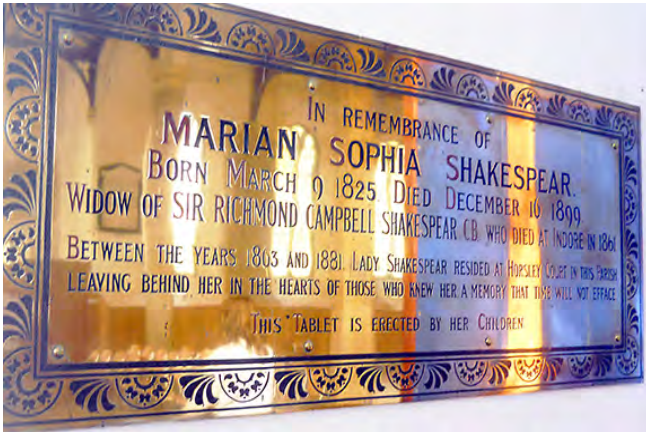 IN REMEMBRANCE OF
MARIAN SOPHIA SHAKESPEAR.
BORN MARCH 9 1825. DIED DECEMBER 16 1899.
WIDOW OF SIR RICHMOND CAMPBELL SHAKESPEAR C.B. WHO DIED AT INDORE IN 1861
BETWEEN THE YEARS 1863 AND 1881 LADY SHAKESPEAR RESIDED AT HORSLEY COURT IN THIS PARISH
LEAVING BEHIND HER IN THE HEARTS OF THOSE WHO KNEW HER A MEMORY THAT TIME WILL NOT EFFACE
THIS TABLET IS ERECTED BY HER CHILDREN